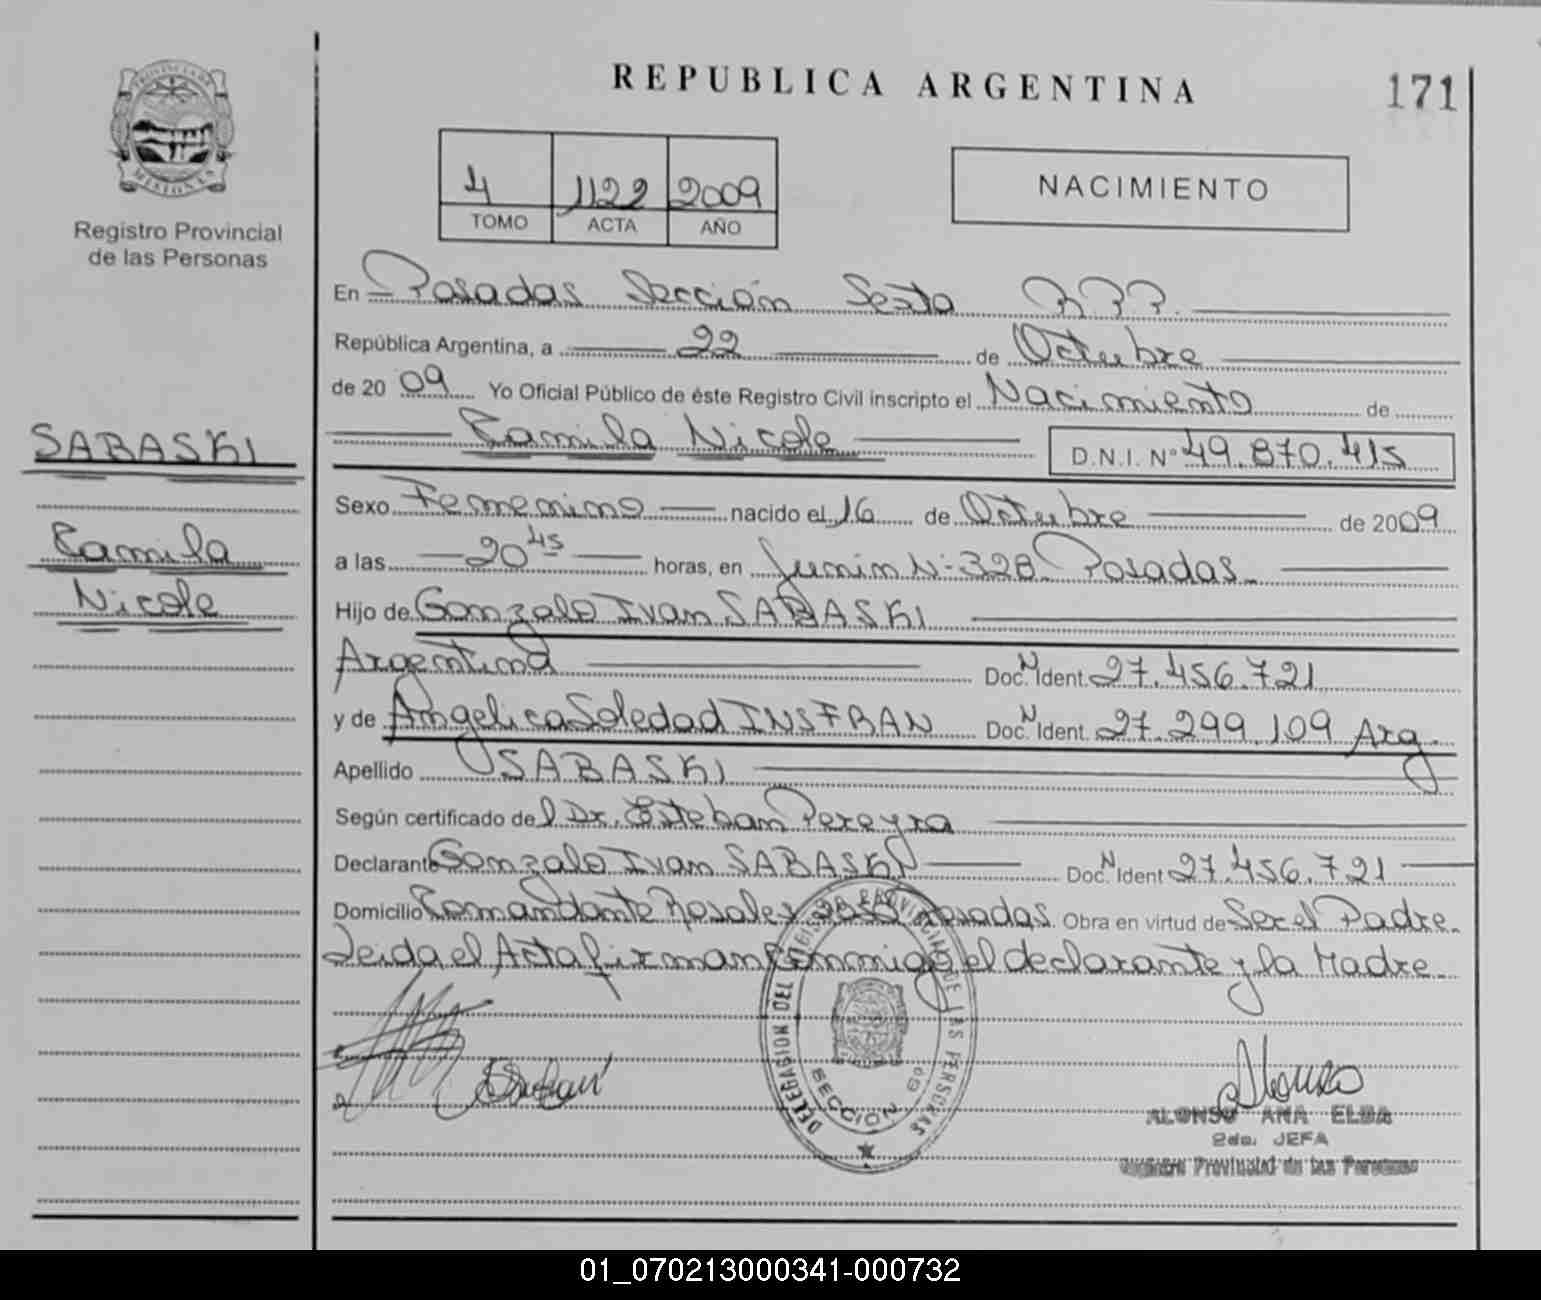 REPUBLICA ARGENTINA
171
PROVINCIA DE
MISIONES
Registro Provincial
de las Personas
4 1122 2009
TOMO ACTA AÑO
NACIMIENTO
En Posadas Sección Sexta
República Argentina, a 22 de Octubre
de 2009 Yo Oficial Público de éste Registro Civil inscripto el Nacimiento de
Camila Nicole D.N.I. Nº 49.870.415
SABASKI
Camila
Nicole
Sexo Femenino nacido el 16 de Octubre de 2009
a las 20 45 horas, en Junin Nº 328 Posadas
Hijo de Gonzalo Ivan SABASKI
Argentina Doc. N Ident. 27.456.721
y de Angelica Soledad INSFRAN Doc. N Ident. 27.299.109 Arg.
Apellido SABASKI
Según certificado del Dr. Esteban Pereyra
Declarante Gonzalo Ivan SABASKI Doc. N Ident 27.456.721
Domicilio Comandante Rosales Posadas. Obra en virtud de Ser el Padre.
Leida el Acta firman conmigo el declarante y la Madre
DELEGACION DEL REGISTRO PROVINCIAL DE LAS PERSONAS
SECCION 6º
ALONSO ANA ELBA
2da. JEFA
Registro Provincial de las Personas
01_070213000341-000732